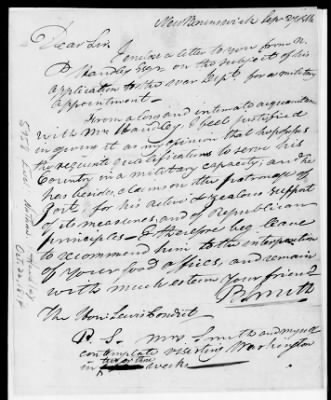 New Brunswick Sepr 29 1814
Dear Sir.
I enclose a letter to you from N.
Handley Esqr on the subject of his
application to the War Dept. for a military
appointment.
From a long and intimate acquaintance
with Mr Handley, I feel justified
in giving it as my opinion that he possesses
the requisite qualifications to serve his
Country in a military capacity; and he
has besides, claims on the patronage of
Govt. for his active & zealous support
of its measures, and of Republican
principles — I therefore beg leave
to recommend him to the interposition
of your good offices, and remain
with much esteem Your friend
B Smith
The Hon: Lewis Condict
P. S. Mrs. Smith and myself
contemplate visiting Washington
in two or three weeks